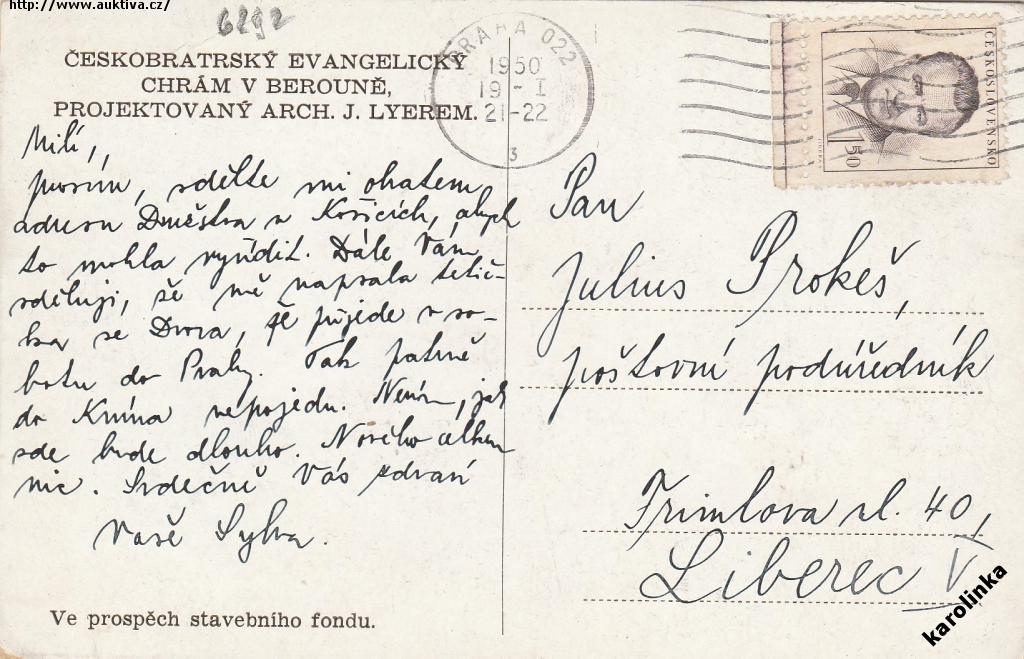 http://www.auktiva.cz/
6292
ČESKOBRATRSKÝ EVANGELICKÝ
CHRÁM V BEROUNĚ,
PROJEKTOVANÝ ARCH. J. LYEREM.
PRAHA 022
1950
19-I
21-22
3
ČESKOSLOVENSKO
1.50
Milí,
prosím, sdělte mi obratem
adresu Družstva v Košicích, abych
to mohla vyřídit. Dále Vám
sděluji, že mě napsala tetič-
ka ze Dvora, že přijede v so-
botu do Prahy. Tak patrně
do Knína nepojedu. Nevím, jak
zde bude dlouho. Nového celkem
nic. Srdečně Vás zdraví
Vaše Sylva.
Pan
Julius Prokeš,
poštovní podúředník
Frimlova ul. 40,
Liberec V
Ve prospěch stavebního fondu.
karolinka